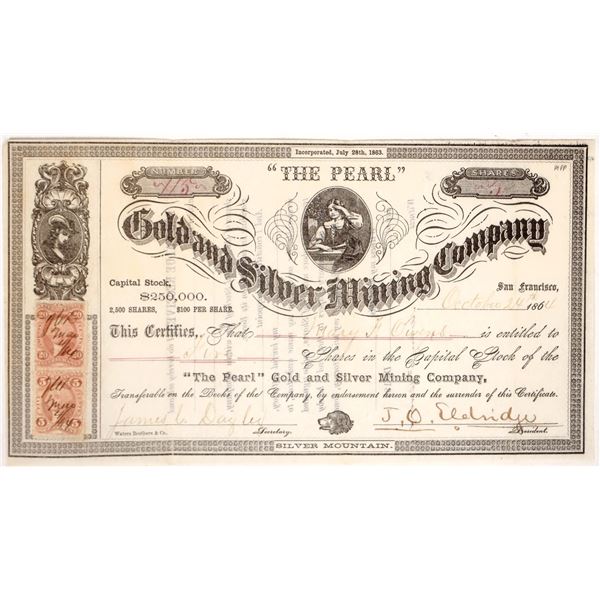 Incorporated, July 28th, 1863.
NUMBER
115
"THE PEARL"
SHARES
Gold and Silver Mining Company
Capital Stock,
$250,000.
2,500 SHARES, $100 PER SHARE.
San Francisco,
October 24th 1864
This Certifies, That Mary is entitled to
Shares in the Capital Stock of the
"The Pearl" Gold and Silver Mining Company,
Transferable on the Books of the Company, by endorsement hereon and the surrender of this Certificate.
James C. J. O. Eldridge
Waters Brothers & Co. Secretary. President.
SILVER MOUNTAIN.
20 20
5 5